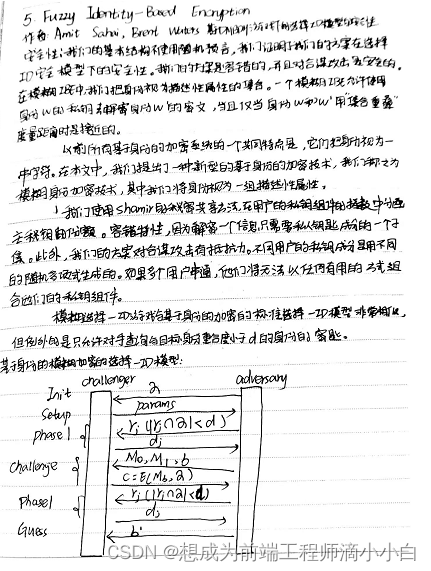 5. Fuzzy Identity-Based Encryption
作者: Amit Sahai, Brent Waters
安全性: 我们的基本结构不使用随机预言。我们证明了我们的方案在选择
ID安全模型下的安全性。我们的方案是容错的, 并且对合谋攻击是安全的。
在模糊IBE中, 我们把身份视为描述性属性的集合。一个模糊IBE允许使用
身份W的私钥去解密身份W'的密文, 当且仅当身份W和W'用“集合重叠”
度量距离时是接近的。
以前所有基于身份的加密系统的一个共同特点是, 它们把身份视为一
串字符。在本文中, 我们提出了一种新型的基于身份的加密技术, 我们称之为
模糊身份加密技术, 其中我们将身份视为一组描述性属性。
我们使用Shamir的秘密共享方法, 在用户的私钥组件的指数中分
主秘钥的份额。容错特性, 因为解密一个信息只需要私钥成分的一个子
集。此外, 我们的方案对合谋攻击有抵抗力。不同用户的私钥成分是用不同
的随机多项式生成的。如果多个用户串通, 他们将无法以任何有用的方式组
合他们的私钥组件。
模糊选择-ID游戏与基于身份的加密的标准选择-ID模型非常相似,
但例外的是只允许对手查询与目标身份重合度小于d的身份的密钥。
基于身份的模糊加密的选择-ID模型:
challenger adversary
Init 2
Setup params
phase1 rj (|rj∩2|<d)
dj
challenge M0, M1, b
C=E(Mb, 2)
Phase1 rj (|rj∩2|<d)
dj
Guess b'
CSDN @想成为前端工程师滴小小白